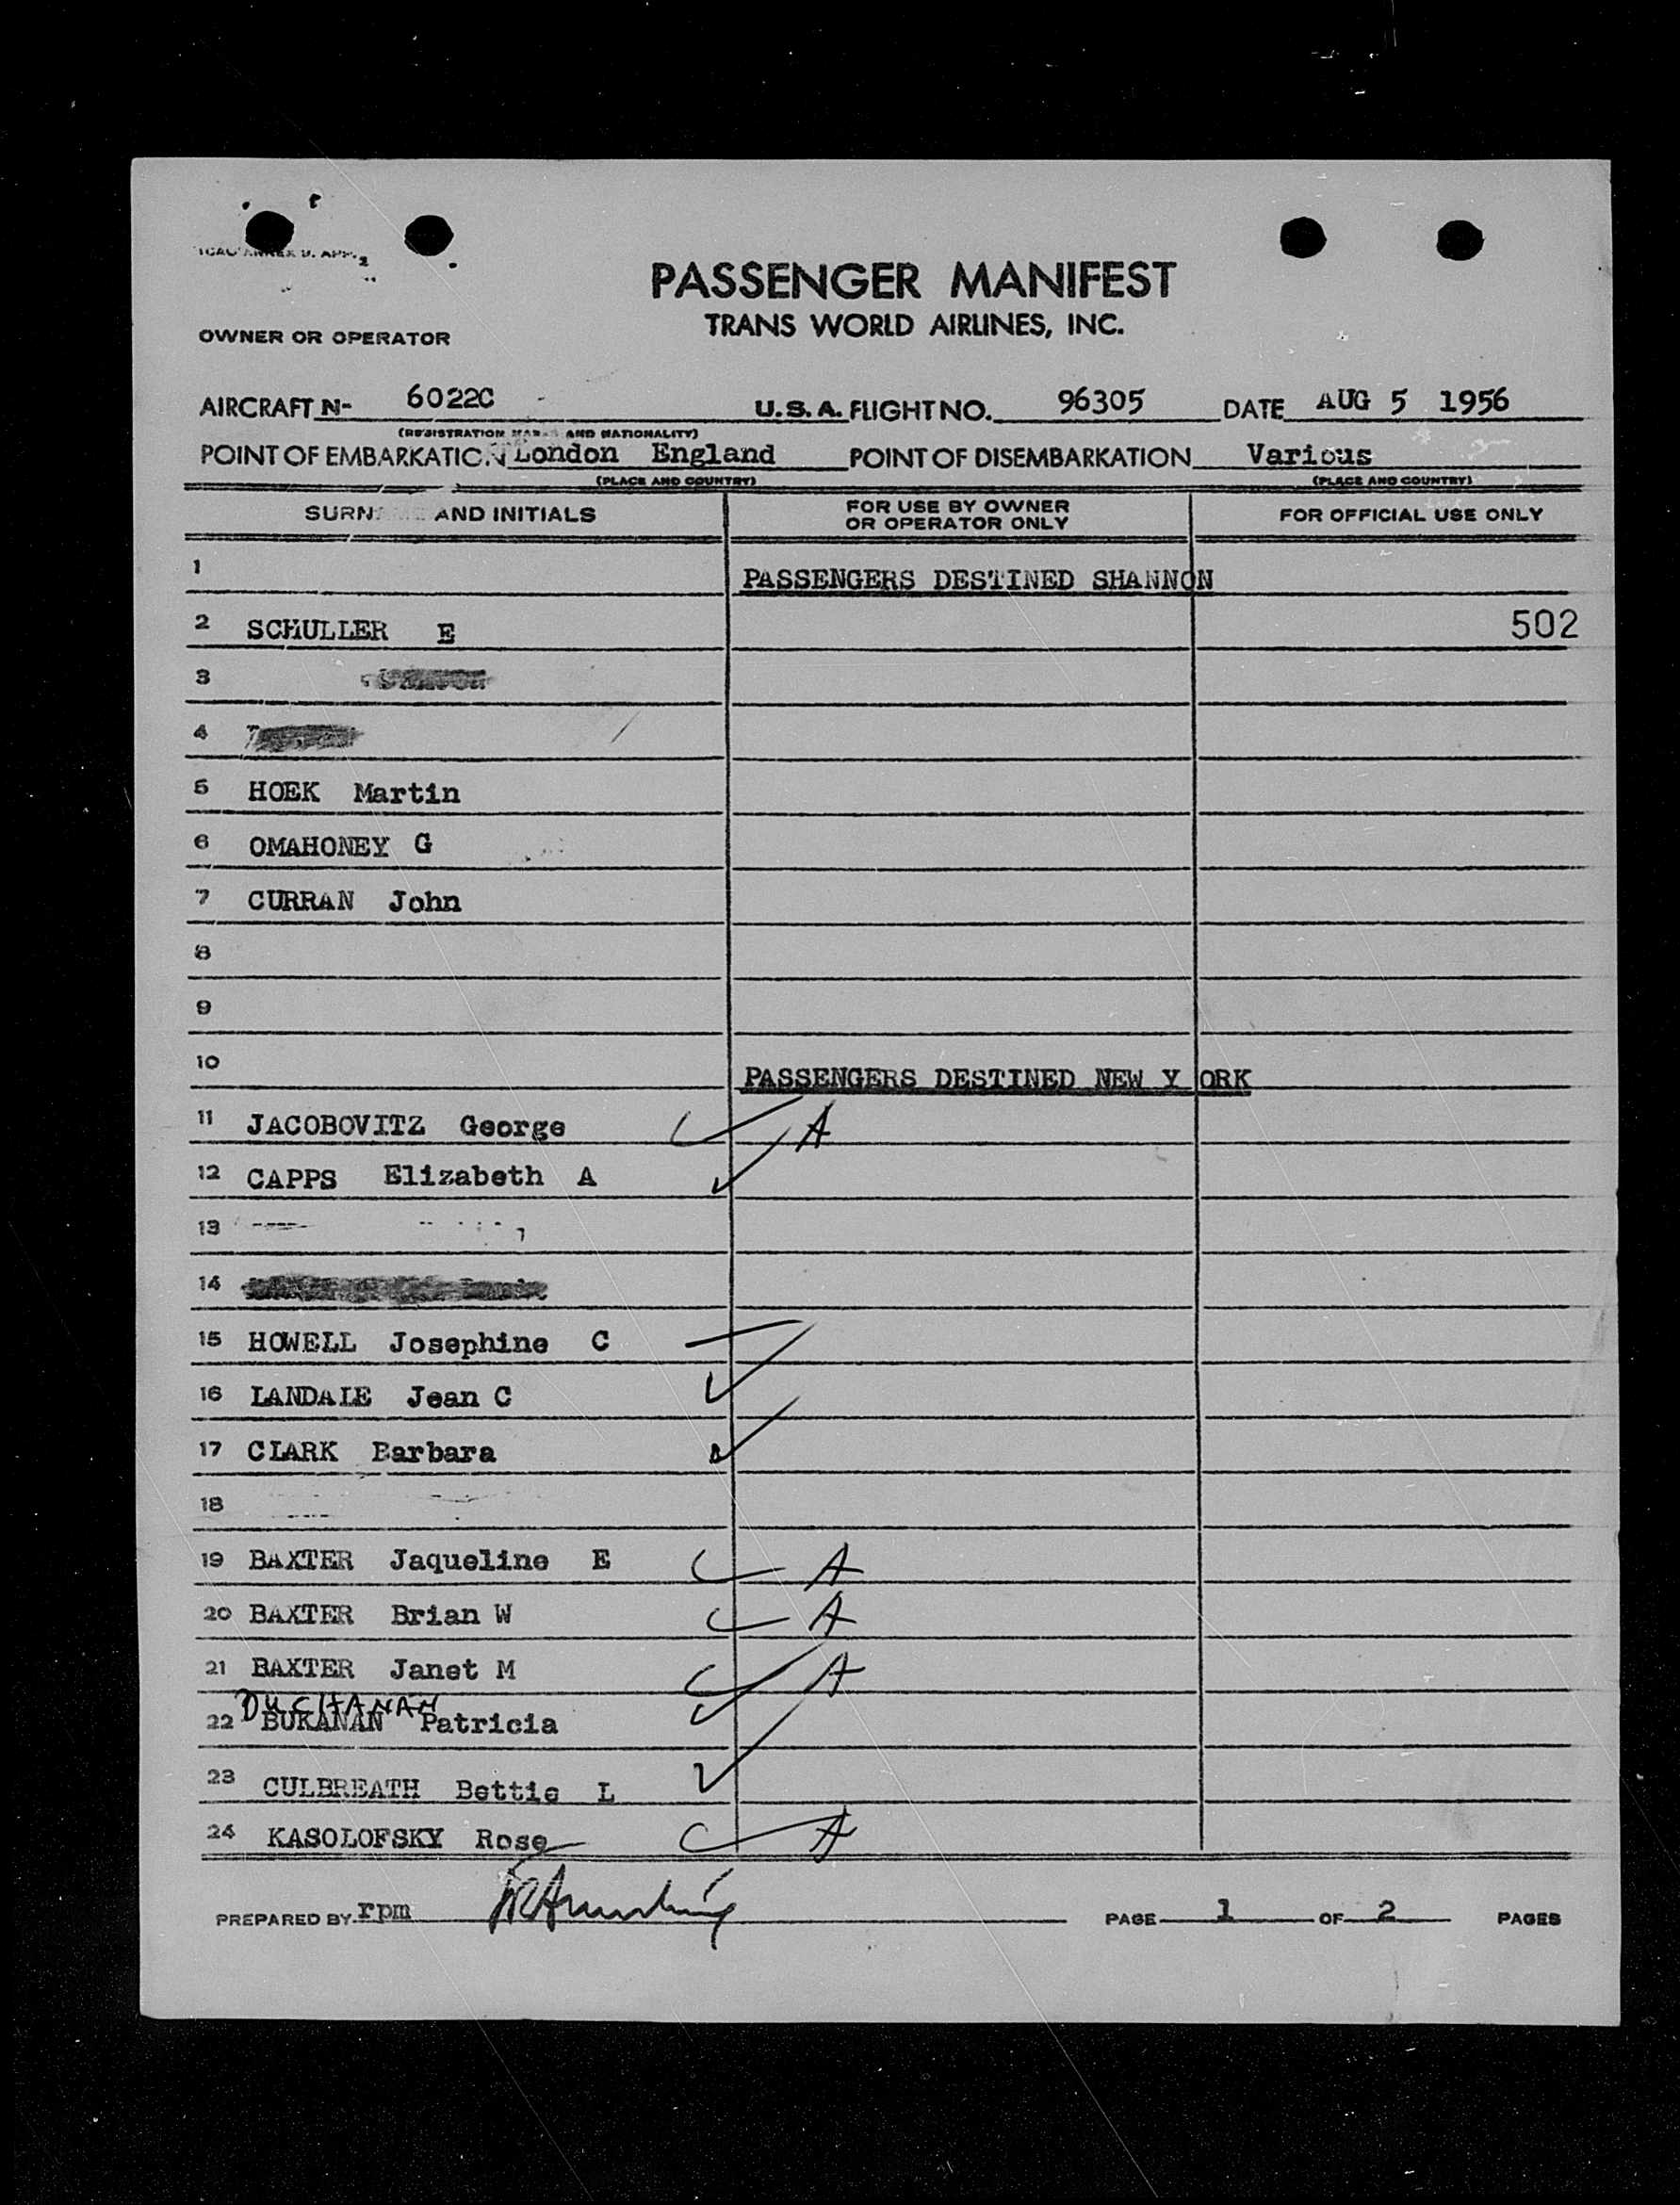 PASSENGER MANIFEST
TRANS WORLD AIRLINES, INC.
OWNER OR OPERATOR
AIRCRAFT N- 6022C U.S.A. FLIGHT NO. 96305 DATE AUG 5 1956
(REGISTRATION MARKS AND NATIONALITY)
POINT OF EMBARKATION London England POINT OF DISEMBARKATION Various
(PLACE AND COUNTRY) (PLACE AND COUNTRY)
AND INITIALS FOR USE BY OWNER OR OPERATOR ONLY FOR OFFICIAL USE ONLY
1 PASSENGERS DESTINED SHANNON
2 SCHULLER E 502
3
4
5 HOEK Martin
6 OMAHONEY G
7 CURRAN John
8
9
10 PASSENGERS DESTINED NEW Y ORK
11 JACOBOVITZ George A
12 CAPPS Elizabeth A
13
14
15 HOWELL Josephine C
16 LANDALE Jean C
17 CLARK Barbara
18
19 BAXTER Jaqueline E A
20 BAXTER Brian W A
21 BAXTER Janet M A
22 BUKANAN Patricia
23 CULBREATH Bettie L
24 KASOLOFSKY Rose A
PREPARED BY rpm PAGE 1 OF 2 PAGES